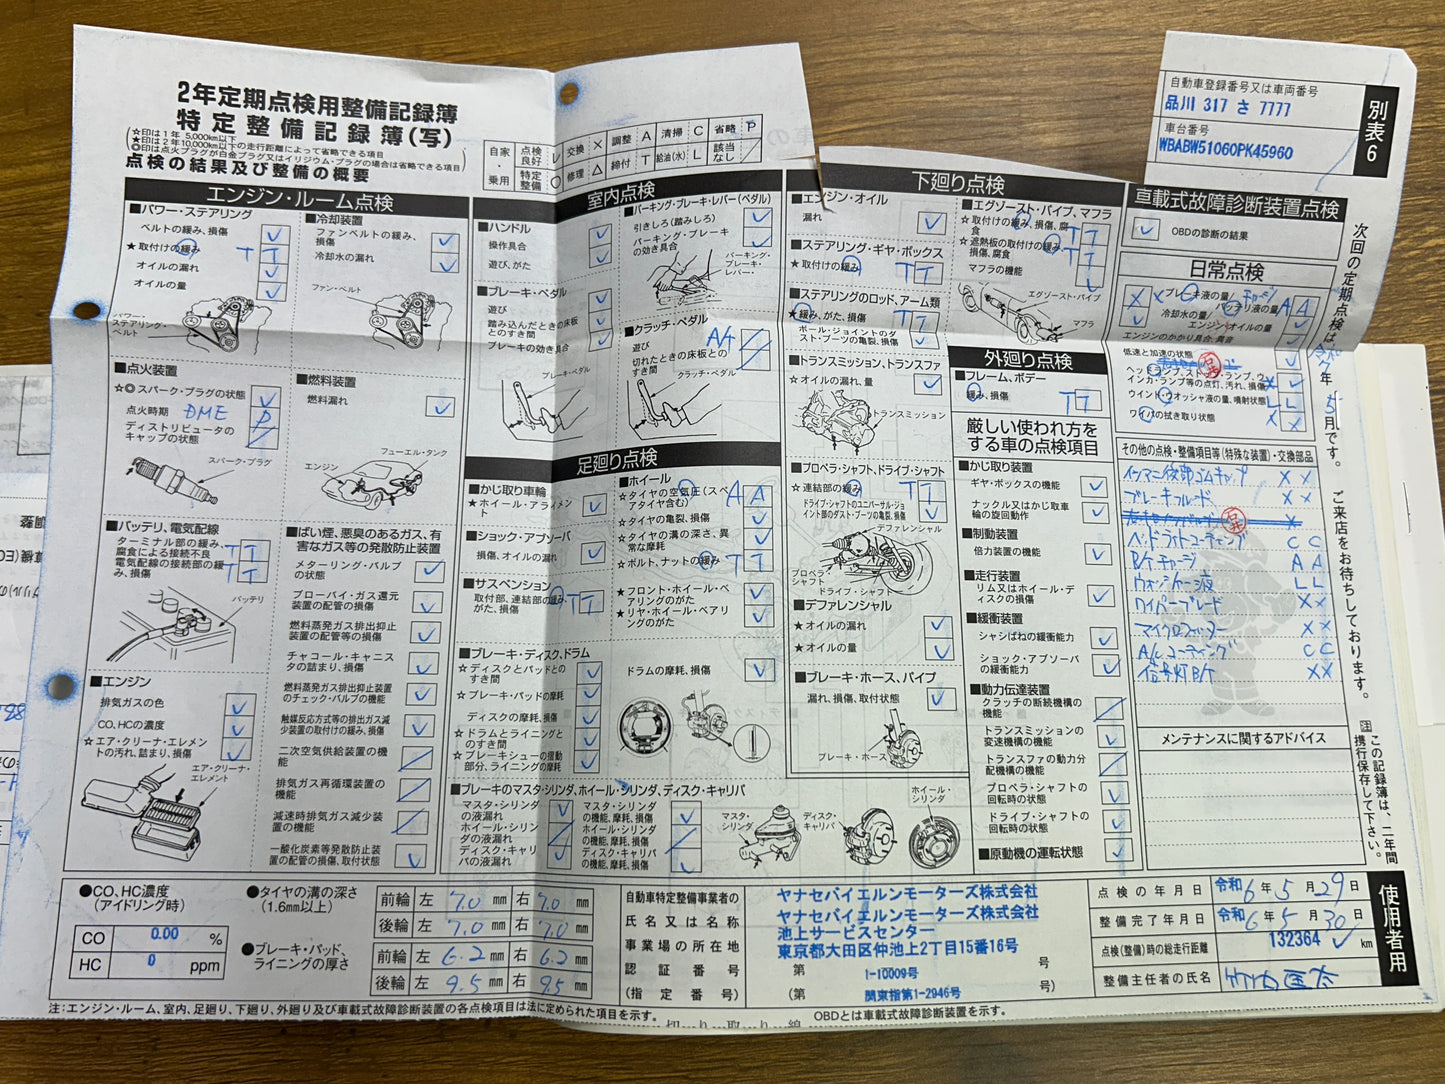 2年定期点検用整備記録簿
特定整備記録簿(写)
☆印は1年 5,000km以下
★印は2年10,000km以下の走行距離によって省略できる項目
◎印は点火プラグが白金プラグ又はイリジウム・プラグの場合は省略できる項目
点検の結果及び整備の概要
自家・乗用
点検良好 レ 交換 × 調整 A 清掃 C 省略 P
特定整備 ○ 修理 △ 締付 T 給油(水) L 該当なし ╱
自動車登録番号又は車両番号
品川 317 さ 7777
車台番号
WBABW51060PK45960
別表6
エンジン・ルーム点検
■パワー・ステアリング
ベルトの緩み、損傷
★取付けの緩み T T
オイルの漏れ
オイルの量
パワー・ステアリング・ベルト
■冷却装置
ファンベルトの緩み、損傷
冷却水の漏れ
ファン・ベルト
■点火装置
☆◎スパーク・プラグの状態
点火時期 DME P
ディストリビュータのキャップの状態
スパーク・プラグ
■燃料装置
燃料漏れ
フューエル・タンク
エンジン
■バッテリ、電気配線
ターミナル部の緩み、腐食による接続不良 T T
電気配線の接続部の緩み、損傷 T T
バッテリ
■ばい煙、悪臭のあるガス、有害なガス等の発散防止装置
メターリング・バルブの状態
ブローバイ・ガス還元装置の配管の損傷
燃料蒸発ガス排出抑止装置の配管等の損傷
チャコール・キャニスタの詰まり、損傷
燃料蒸発ガス排出抑止装置のチェック・バルブの機能
触媒反応方式等の排出ガス減少装置の取付けの緩み、損傷
二次空気供給装置の機能
排気ガス再循環装置の機能
減速時排気ガス減少装置の機能
一酸化炭素等発散防止装置の配管の損傷、取付状態
■エンジン
排気ガスの色
CO、HCの濃度
☆エア・クリーナ・エレメントの汚れ、詰まり、損傷
エア・クリーナ・エレメント
室内点検
■ハンドル
操作具合
遊び、がた
■ブレーキ・ペダル
遊び
踏み込んだときの床板とのすき間
ブレーキの効き具合
ブレーキ・ペダル
■パーキング・ブレーキ・レバー(ペダル)
引きしろ(踏みしろ)
パーキング・ブレーキの効き具合
パーキング・ブレーキ・レバー・
■クラッチ・ペダル
遊び
切れたときの床板とのすき間
クラッチ・ペダル
足廻り点検
■かじ取り車輪
★ホイール・アライメント
■ショック・アブソーバ
損傷、オイルの漏れ
■サスペンション
取付部、連結部の緩み、がた、損傷 T T
■ホイール
☆タイヤの空気圧(スペアタイヤ含む) A A
☆タイヤの亀裂、損傷
☆タイヤの溝の深さ、異常な摩耗
★ボルト、ナットの緩み T T
★フロント・ホイール・ベアリングのがた
★リヤ・ホイール・ベアリングのがた
■ブレーキ・ディスク、ドラム
☆ディスクとパッドとのすき間
☆ブレーキ・パッドの摩耗
ディスクの摩耗、損傷
☆ドラムとライニングとのすき間
☆ブレーキシューの摺動部分、ライニングの摩耗
ドラムの摩耗、損傷
■ブレーキのマスタ・シリンダ、ホイール・シリンダ、ディスク・キャリパ
マスタ・シリンダの液漏れ
ホイール・シリンダの液漏れ
ディスク・キャリパの液漏れ
マスタ・シリンダの機能、摩耗、損傷
ホイール・シリンダの機能、摩耗、損傷
ディスク・キャリパの機能、摩耗、損傷
マスタ・シリンダ
ディスク・キャリパ
ホイール・シリンダ
下廻り点検
■エンジン・オイル
漏れ
■ステアリング・ギヤ・ボックス
★取付けの緩み T T
■ステアリングのロッド、アーム類
☆緩み、がた、損傷 T T
ボール・ジョイントのダスト・ブーツの亀裂、損傷
■トランスミッション、トランスファ
☆オイルの漏れ、量
トランスミッション
■プロペラ・シャフト、ドライブ・シャフト
☆連結部の緩み T T
ドライブ・シャフトのユニバーサル・ジョイント部のダスト・ブーツの亀裂、損傷
デファレンシャル
プロペラ・シャフト
ドライブ・シャフト
■デファレンシャル
★オイルの漏れ
★オイルの量
■ブレーキ・ホース、パイプ
漏れ、損傷、取付状態
ブレーキ・ホース
■エグゾースト・パイプ、マフラ
☆取付けの緩み、損傷、腐食 T T
☆遮熱板の取付けの緩み、損傷、腐食 T T
マフラの機能
エグゾースト・パイプ
マフラ
外廻り点検
■フレーム、ボデー
緩み、損傷 T T
厳しい使われ方をする車の点検項目
■かじ取り装置
ギヤ・ボックスの機能
ナックル又はかじ取車輪の旋回動作
■制動装置
倍力装置の機能
■走行装置
リム又はホイール・ディスクの損傷
■緩衝装置
シャシばねの緩衝能力
ショック・アブソーバの緩衝能力
■動力伝達装置
クラッチの断続機構の機能
トランスミッションの変速機構の機能
トランスファの動力分配機構の機能
プロペラ・シャフトの回転時の状態
ドライブ・シャフトの回転時の状態
■原動機の運転状態
車載式故障診断装置点検
OBDの診断の結果
日常点検
ブレーキ液の量/
冷却水の量/
バッテリ液の量
エンジン・オイルの量
エンジンのかかり具合、異音
低速と加速の状態
ヘッドランプ、ストップ・ランプ、ウインカ・ランプ等の点灯、汚れ、損傷
ウインド・ウオッシャ液の量、噴射状態 L L
ワイパの拭き取り状態 X X
その他の点検・整備項目等(特殊な装置)・交換部品
ブレーキフルード X X
ヘッドライトコーティング C C
B/Tチャージ A A
ウォッシャー液 L L
ワイパーブレード X X
マイクロフィルター X X
A/Cコーティング C C
メンテナンスに関するアドバイス
次回の定期点検は 7年 5月です。 ご来店をお待ちしております。
注 この記録簿は、二年間携行保存して下さい。
使用者用
●CO、HC濃度(アイドリング時)
CO 0.00 %
HC 0 ppm
●タイヤの溝の深さ(1.6mm以上)
前輪 左 7.0 mm 右 7.0 mm
後輪 左 7.0 mm 右 7.0 mm
●ブレーキ・パッド、ライニングの厚さ
前輪 左 6.2 mm 右 6.2 mm
後輪 左 9.5 mm 右 9.5 mm
自動車特定整備事業者の氏名又は名称
事業場の所在地
認証番号
(指定番号)
ヤナセバイエルンモーターズ株式会社
ヤナセバイエルンモーターズ株式会社
池上サービスセンター
東京都大田区仲池上2丁目15番16号
第 1-10009号 号
(第 関東指第1-2946号 号)
点検の年月日 令和6年5月29日
整備完了年月日 令和6年5月30日
点検(整備)時の総走行距離 132364 km
整備主任者の氏名
注:エンジン・ルーム、室内、足廻り、下廻り、外廻り及び車載式故障診断装置の各点検項目は法に定められた項目を示す。
OBDとは車載式故障診断装置を示す。
切り取り線